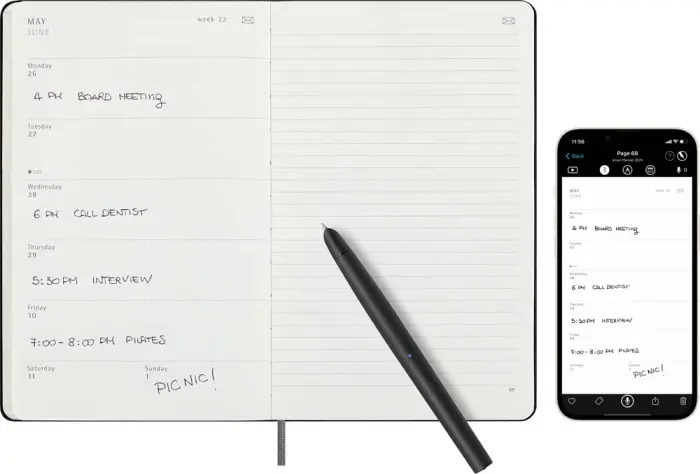 MAY
week 22
JUNE
Monday
26
4 PM BOARD MEETING
Tuesday
27
Wednesday
28
6 PM CALL DENTIST
Thursday
29
5:30 PM INTERVIEW
Friday
30
7:00 - 8:00 PM PILATES
Saturday
31
Sunday
1
PICNIC!
11:56
Back
Page 68
Smart Planner 2025
MAY
JUNE
4 PM BOARD MEETING
6 PM CALL DENTIST
5:30 PM INTERVIEW
7:00 - 8:00 PM PILATES
PICNIC!